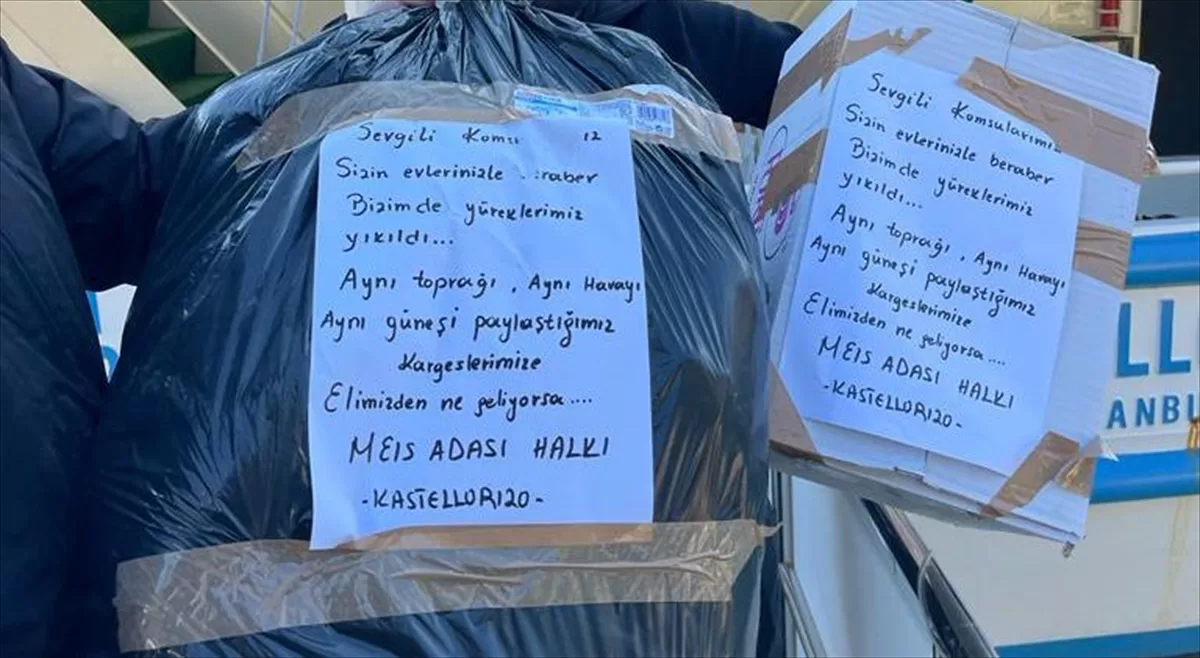 Sevgili Komsu 12
Sizin evlerinizle beraber
Bizimde yüreklerimiz
yıkıldı...
Aynı toprağı, Aynı Havayı
Aynı güneşi paylaştığımız
Kargeslerimize
Elimizden ne geliyorsa....
MEIS ADASI HALKI
-KASTELLORIZO-
Sevgili Komsularımız
Sizin evlerinizle beraber
Bizimde yüreklerimiz
yıkıldı...
Aynı toprağı, Aynı Havayı
Aynı güneşi paylaştığımız
Kargeslerimize
Elimizden ne geliyorsa....
MEIS ADASI HALKI
-KASTELLORIZO-
LL
ANBU